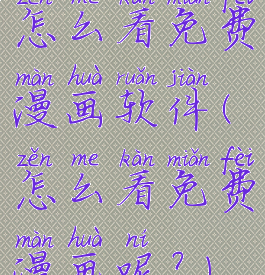 zěn me kàn miǎn fèi
怎么看免费
màn huà ruǎn jiàn
漫画软件(
zěn me kān miǎn fèi
怎么看免费
màn huà ní
漫画呢?)